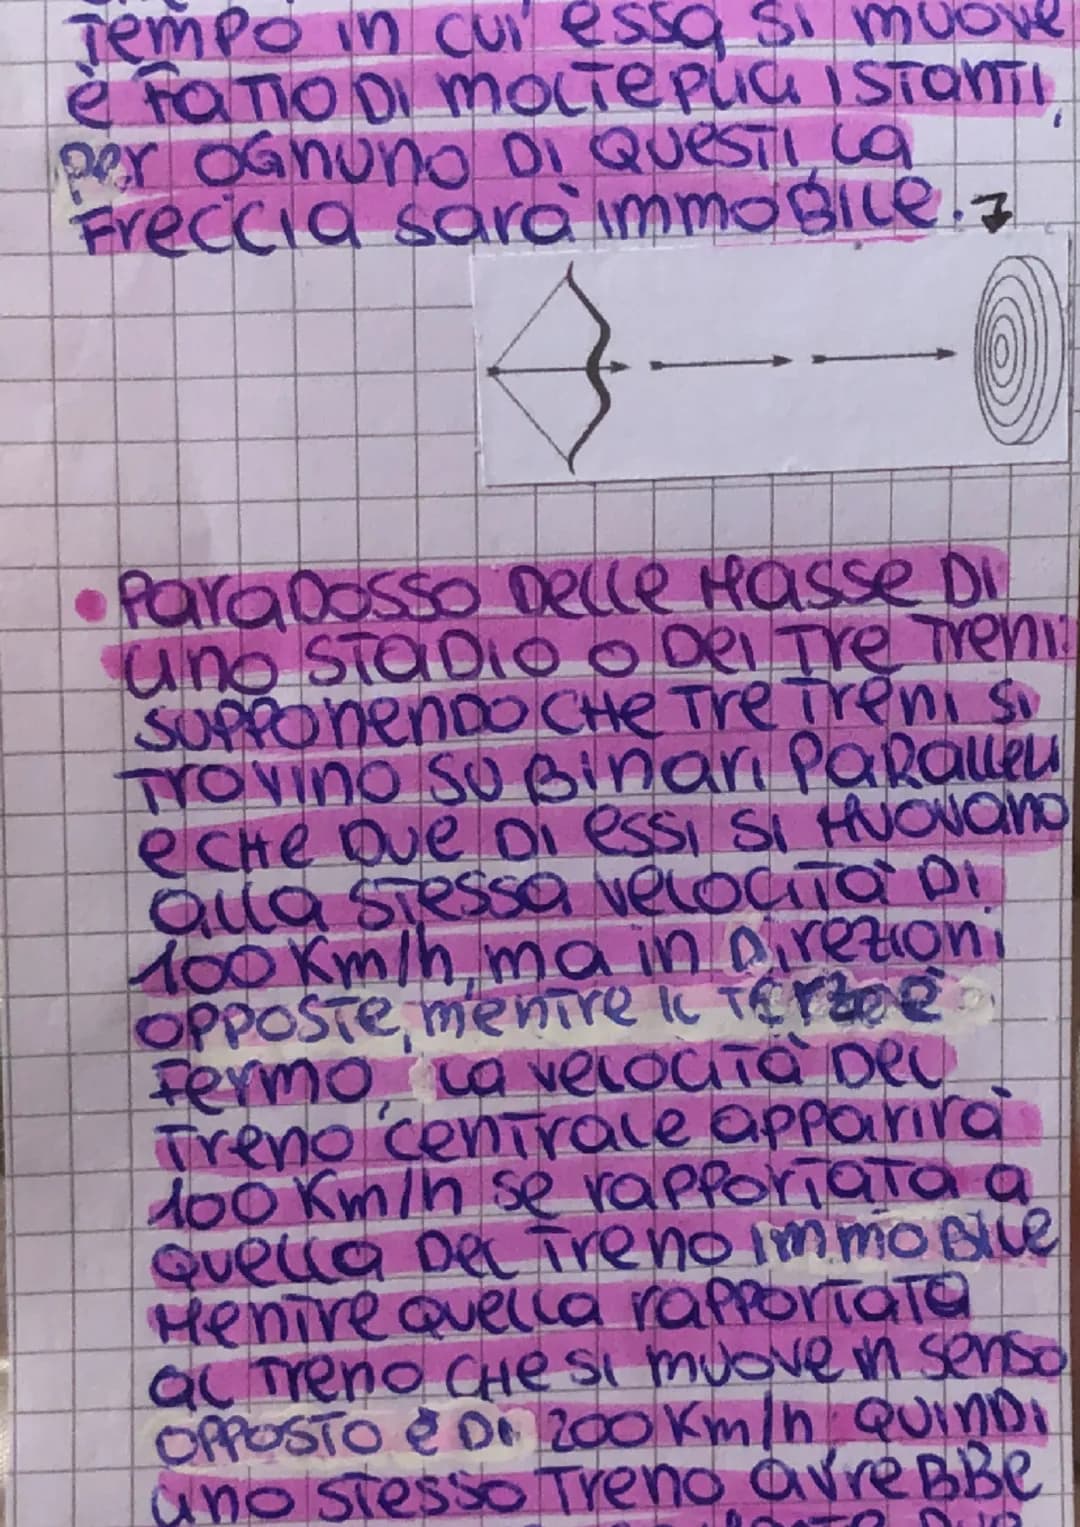 Tempo in cui essa si muove
è fatto di molteplici istanti,
per ognuno di questi la
freccia sarà immobile. 7
• Paradosso delle masse di
uno stadio o dei tre treni:
supponendo che tre treni si
trovino su binari paralleli
e che due di essi si muovano
alla stessa velocità di
100 Km/h, ma in direzioni
opposte, mentre il terzo è
fermo, la velocità del
treno centrale apparirà
100 Km/h se rapportata a
quella del treno immobile
mentre quella rapportata
al treno che si muove in senso
opposto è di 200 Km/h. Quindi
uno stesso treno avrebbe